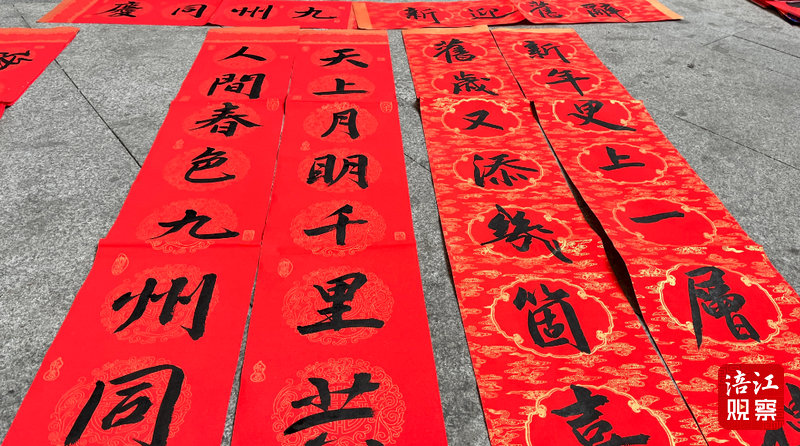 辭舊迎新
九州同慶
新年更上一層
舊歲又添幾箇喜
天上月明千里
人間春色九州同
涪江
观察